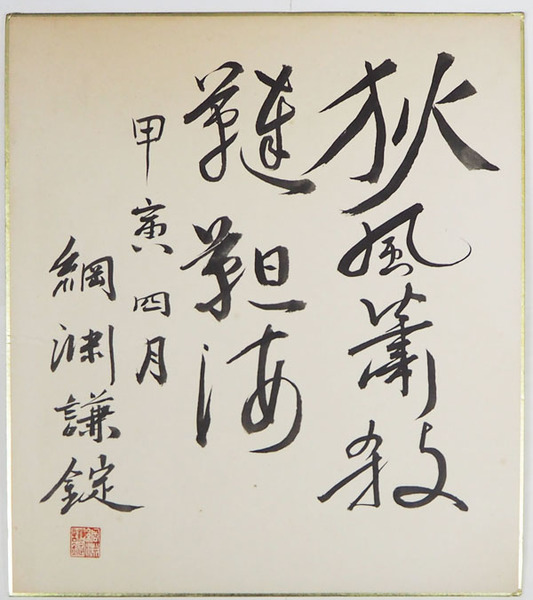 狄風蕭殺
鞑靼海
甲寅四月
綱淵謙錠